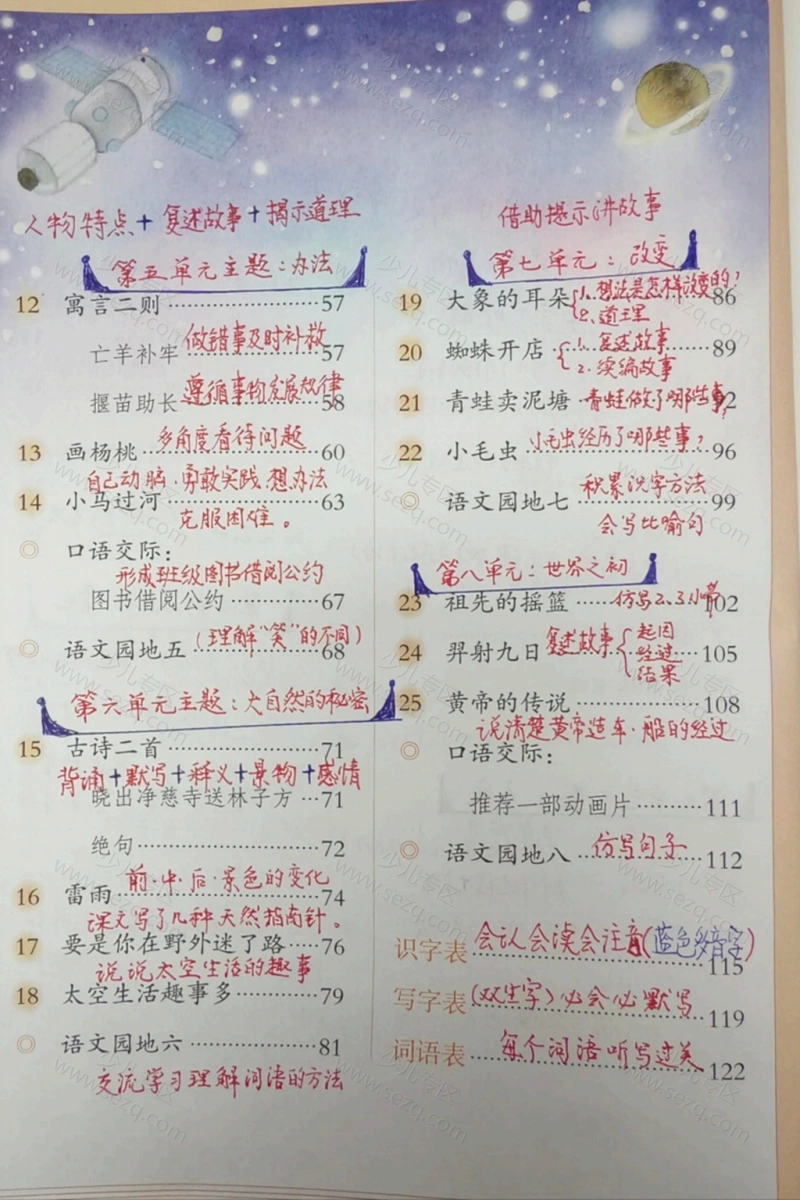 人物特点+复述故事+揭示道理
第五单元主题：办法
12 寓言二则 57
做错事及时补救
亡羊补牢 57
遵循事物发展规律
揠苗助长 58
多角度看待问题
13 画杨桃 60
自己动脑·勇敢实践·想办法
14 小马过河 63
克服困难。
口语交际：
形成班级图书借阅公约
图书借阅公约 67
（理解“笑”的不同）
语文园地五 68
第六单元主题：大自然的秘密
15 古诗二首 71
背诵+默写+释义+景物+感情
晓出净慈寺送林子方 71
绝句 72
前·中·后·景色的变化
16 雷雨 74
课文写了几种天然指南针。
17 要是你在野外迷了路 76
说说太空生活的趣事
18 太空生活趣事多 79
语文园地六 81
交流学习理解词语的方法
借助提示讲故事
第七单元：改变
19 大象的耳朵 86
1.想法是怎样改变的？
2.道理
20 蜘蛛开店 89
1.复述故事
2.续编故事
21 青蛙卖泥塘 青蛙做了哪些事？ 92
22 小毛虫 小毛虫经历了哪些事？ 96
积累识字方法
语文园地七 99
会写比喻句
第八单元：世界之初
23 祖先的摇篮 仿写2、3小节 102
24 羿射九日 复述故事 105
起因
经过
结果
25 黄帝的传说 108
说清楚黄帝造车·船的经过
口语交际：
推荐一部动画片 111
语文园地八 仿写句子 112
识字表 会认会读会注音（蓝色多音字） 115
写字表（双生字）必会必默写 119
词语表 每个词语听写过关 122
少儿专区
www.sezq.com